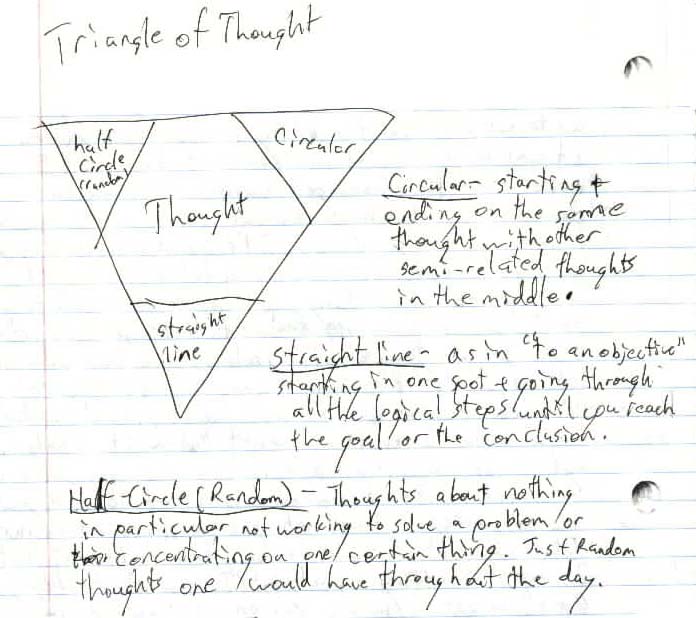 Triangle of Thought
half
Circle
(random)
Circular
Thought
straight
line
Circular - starting +
ending on the same
thought with other
semi-related thoughts
in the middle.
Straight line - as in "to an objective"
starting in one spot + going through
all the logical steps until you reach
the goal or the conclusion.
Half-Circle (Random) - Thoughts about nothing
in particular not working to solve a problem or
concentrating on one certain thing. Just Random
thoughts one would have throughout the day.